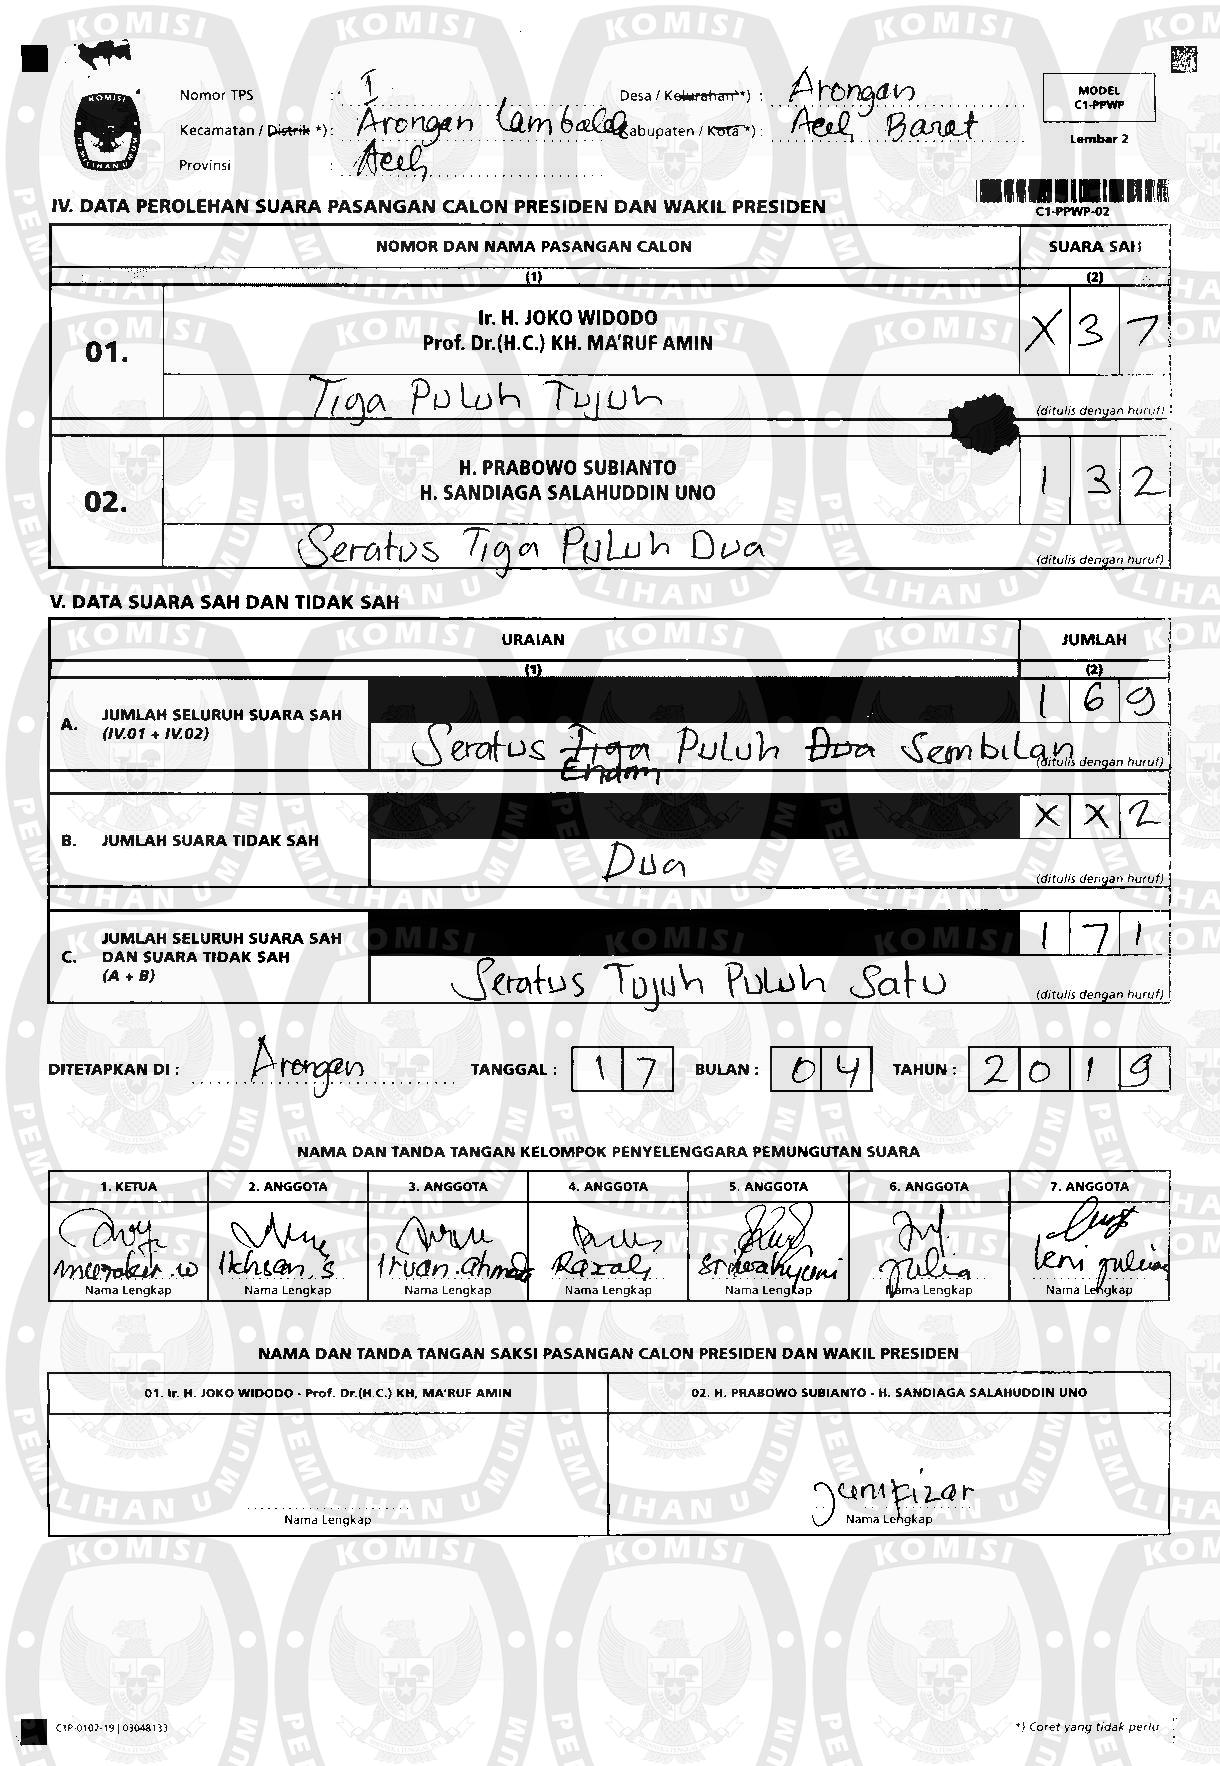 Nomor TPS : I
Desa / Kelurahan *) : Arongan
Kecamatan / Distrik *) : Arongan Lambalek
Kabupaten / Kota *) : Aceh Barat
Provinsi : Aceh
MODEL
C1-PPWP
Lembar 2
C1-PPWP-02
IV. DATA PEROLEHAN SUARA PASANGAN CALON PRESIDEN DAN WAKIL PRESIDEN
NOMOR DAN NAMA PASANGAN CALON SUARA SAH
(1) (2)
01. Ir. H. JOKO WIDODO
Prof. Dr.(H.C.) KH. MA'RUF AMIN
X 3 7
Tiga Puluh Tujuh
(ditulis dengan huruf)
02. H. PRABOWO SUBIANTO
H. SANDIAGA SALAHUDDIN UNO
1 3 2
Seratus Tiga Puluh Dua
(ditulis dengan huruf)
V. DATA SUARA SAH DAN TIDAK SAH
URAIAN JUMLAH
(1) (2)
A. JUMLAH SELURUH SUARA SAH
(IV.01 + IV.02)
1 6 9
Seratus Tiga Puluh Dua Sembilan
Enam
(ditulis dengan huruf)
B. JUMLAH SUARA TIDAK SAH
X X 2
Dua
(ditulis dengan huruf)
C. JUMLAH SELURUH SUARA SAH
DAN SUARA TIDAK SAH
(A + B)
1 7 1
Seratus Tujuh Puluh Satu
(ditulis dengan huruf)
DITETAPKAN DI : Arongan TANGGAL : 1 7 BULAN : 0 4 TAHUN : 2 0 1 9
NAMA DAN TANDA TANGAN KELOMPOK PENYELENGGARA PEMUNGUTAN SUARA
1. KETUA 2. ANGGOTA 3. ANGGOTA 4. ANGGOTA 5. ANGGOTA 6. ANGGOTA 7. ANGGOTA
Ikhsan.s Irvan.ahmad Razali Sriwahyuni Julia
Nama Lengkap Nama Lengkap Nama Lengkap Nama Lengkap Nama Lengkap Nama Lengkap Nama Lengkap
NAMA DAN TANDA TANGAN SAKSI PASANGAN CALON PRESIDEN DAN WAKIL PRESIDEN
01. Ir. H. JOKO WIDODO - Prof. Dr.(H.C.) KH. MA'RUF AMIN 02. H. PRABOWO SUBIANTO - H. SANDIAGA SALAHUDDIN UNO
Jumfizar
Nama Lengkap Nama Lengkap
C1P-0102-19 | 03048133
*) Coret yang tidak perlu
KOMISI
PEMILIHAN UMUM